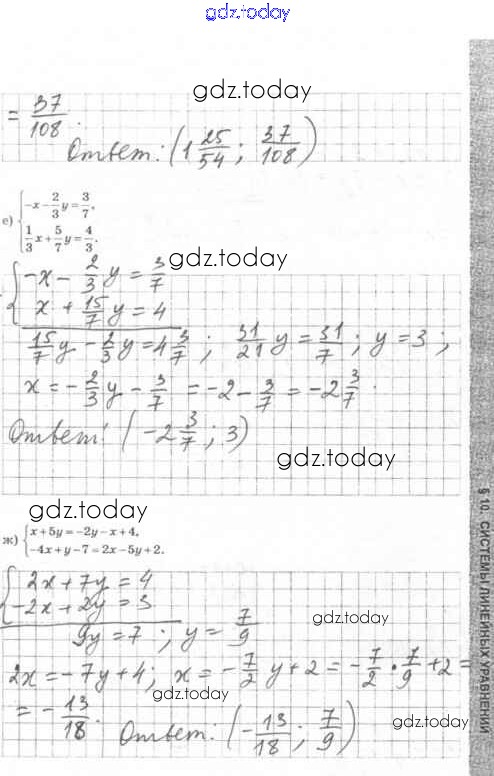 gdz.today
gdz.today
= 37/108.
Ответ: (1 25/54; 37/108)
е) { -x - 2/3 y = 3/7,
1/3 x + 5/7 y = 4/3.
gdz.today
{ -x - 2/3 y = 3/7
x + 15/7 y = 4
15/7 y - 2/3 y = 4 3/7; 31/21 y = 31/7; y = 3;
x = -2/3 y - 3/7 = -2 - 3/7 = -2 3/7.
Ответ: (-2 3/7; 3)
gdz.today
gdz.today
ж) { x + 5y = -2y - x + 4,
-4x + y - 7 = 2x - 5y + 2.
{ 2x + 7y = 4
-2x + 2y = 3
9y = 7; y = 7/9
gdz.today
2x = -7y + 4; x = -7/2 y + 2 = -7/2 · 7/9 + 2 =
gdz.today
= -13/18.
Ответ: (-13/18; 7/9)
gdz.today
§ 10. СИСТЕМЫ ЛИНЕЙНЫХ УРАВНЕНИЙ